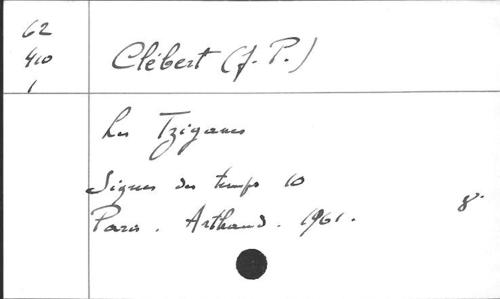 62
410
1
Clébert (J. P.)
Les Tziganes
Signes des temps 10
Paris. Arthaud. 1961.
8°